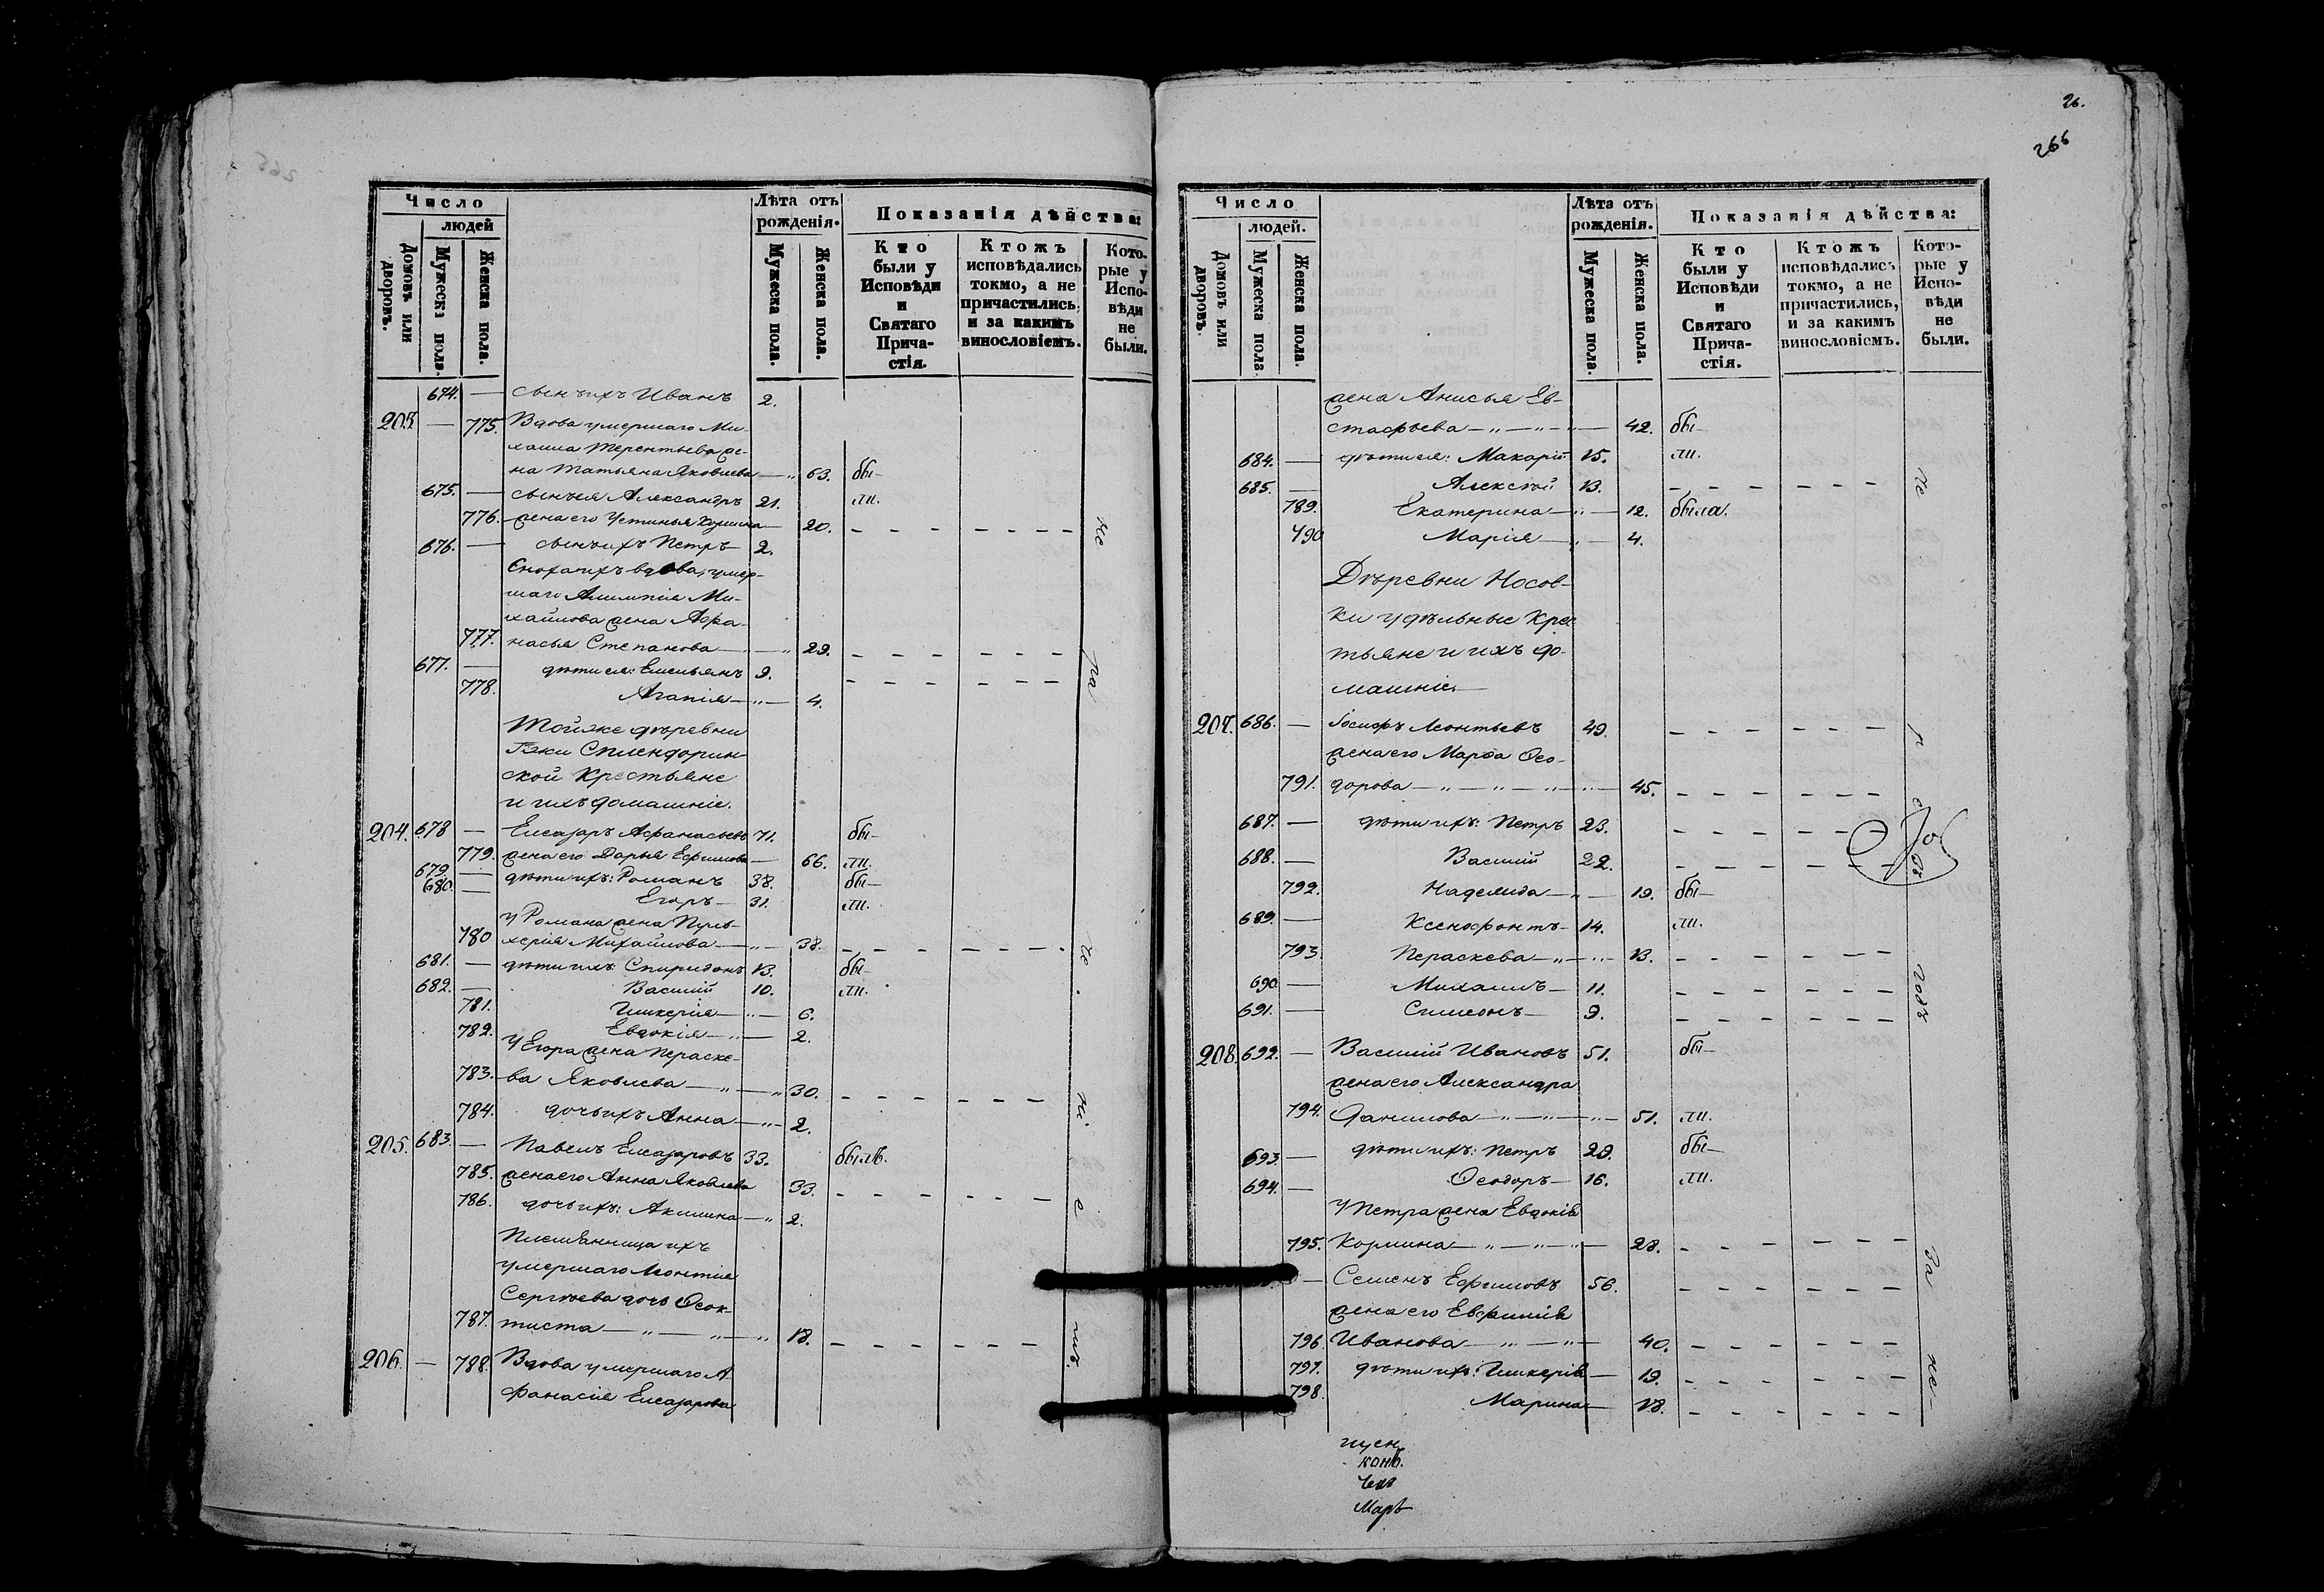 Число
людей
Домовъ или дворовъ.
Мужеска пола.
Женска пола.
Лѣта отъ рожденія.
Мужеска пола.
Женска пола.
Показанія дѣйства:
Кто были у Исповѣди и Святаго Прича-стія.
Ктожъ исповѣдались токмо, а не причастились, и за какимъ винословіемъ.
Кото-рые у Испо-вѣди не были.
674. — сынъ ихъ Иванъ 2.
203. — 775. Вдова умершаго Ми-
хаила Терентьева же-
на Татьяна Яковлева — 63. бы-
675. — сынъ ея Александръ 21. ли.
776. жена его Устинья — 20.
676. — сынъ ихъ Петръ 2.
Сноха ихъ вдова, умер-
шаго Алимпія Ми-
хайлова жена Афа-
777. насья Степанова — 29.
677. — дѣти ея: Емельянъ 9.
778. Агапія — 4.
Той же дѣревни
Сплендорин-
ской Крестьяне
и ихъ домашніе.
204. 678 — Елеазаръ Афанасьевъ 71. бы-
779. жена его Дарья Ефимова — 66. ли.
679. — дѣти ихъ: Романъ 38. бы-
680. — Егоръ — 31. ли.
у Романа жена Пуль-
780 херія Михайлова — 38.
681. — дѣти ихъ: Спиридонъ 13. бы-
682. — Василій 10. ли.
781. Гликерія — 6.
782. Евдокія — 2.
у Егора жена Пераске-
783. ва Яковлева — 30.
784. дочь ихъ Анна — 2.
205. 683. — Павелъ Елеазаровъ 33. былъ.
785. жена его Анна Яковлева 33.
786. дочь ихъ: Акилина — 2.
Племянница ихъ
умершаго Леонтія
Сергѣева дочь Ѳеок-
787. тиста — 18.
206. — 788. Вдова умершаго А-
фанасія Елеазарова
26.
266
Число
людей.
Домовъ или дворовъ.
Мужеска пола.
Женска пола.
Лѣта отъ рожденія.
Мужеска пола.
Женска пола.
Показанія дѣйства:
Кто были у Исповѣди и Святаго Прича-стія.
Ктожъ исповѣдались токмо, а не причастились, и за какимъ винословіемъ.
Кото-рые у Испо-вѣди не были.
жена Анисья Ев-
стафьева — 42. бы-
684. — дѣти ея: Макарій 15. ли.
685. — Алексѣй 13.
789. Екатерина — 12. была.
790 Марія — 4.
Дѣревни Носов-
ки удѣльные Крес-
тьяне и ихъ до-
машніе.
207. 686. — Іосифъ Леонтьевъ 49.
жена его Марѳа Ѳео-
791. дорова — 45.
687. — дѣти ихъ: Петръ 23.
688. — Василій 22.
792. Надежда — 19. бы-
689. — Ксенофонтъ — 14. ли.
793. Пераскева — 13.
690. — Михаилъ — 11.
691. — Симеонъ — 9.
208. 692. — Василій Ивановъ 51. бы-
жена его Александра
794. Данилова — 51. ли.
693. — дѣти ихъ: Петръ 29. бы-
694. — Ѳеодоръ — 16. ли.
у Петра жена Евдокія
795. Кормина — 28.
— Семенъ Ефимовъ 56.
жена его Евфимія
796 Иванова — 40.
797. дѣти ихъ: Гликерія — 19.
798. Марина — 18.